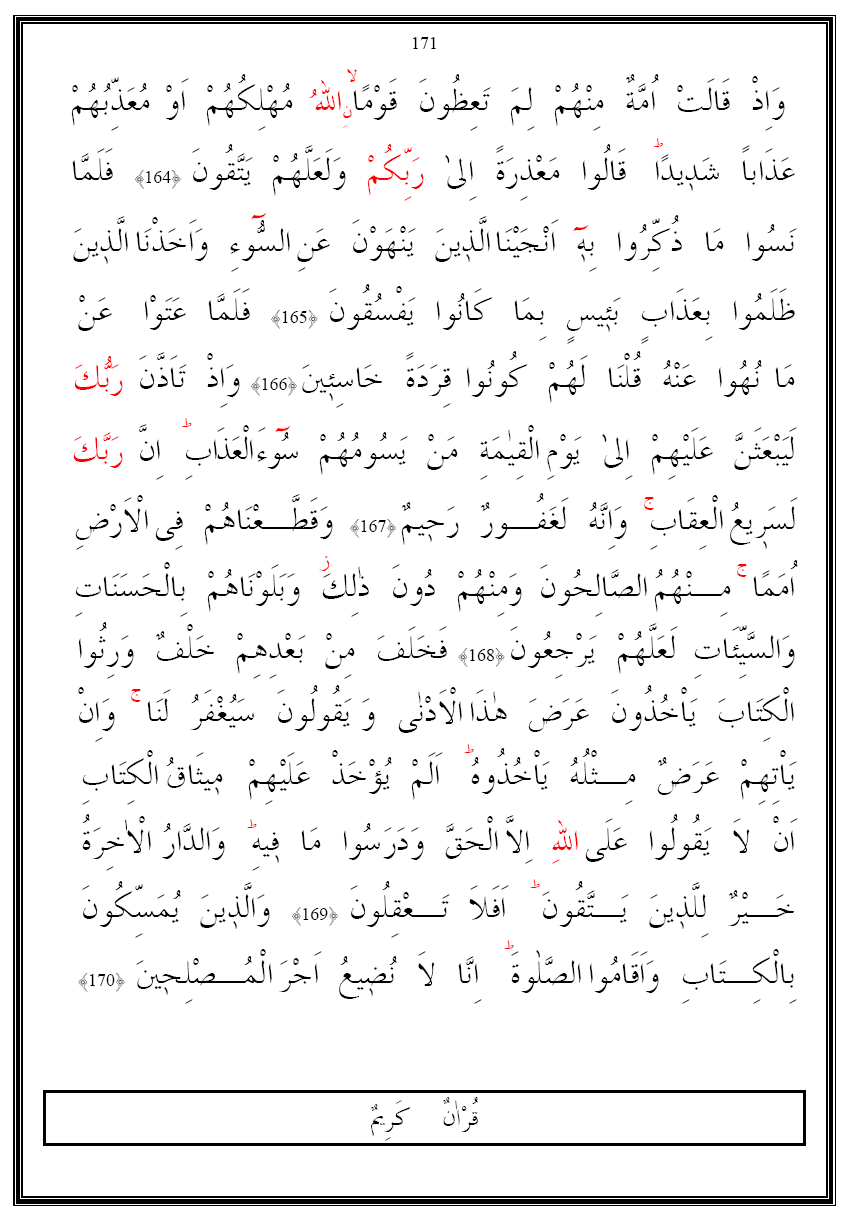 171
وَاِذْ قَالَتْ اُمَّةٌ مِنْهُمْ لِمَ تَعِظُونَ قَوْمًاۙنِ اللّٰهُ مُهْلِكُهُمْ اَوْ مُعَذِّبُهُمْ
عَذَاباً شَد۪يداًۜ قَالُوا مَعْذِرَةً اِلٰى رَبِّكُمْ وَلَعَلَّهُمْ يَتَّقُونَ ﴿164﴾ فَلَمَّا
نَسُوا مَا ذُكِّرُوا بِه۪ٓ اَنْجَيْنَا الَّذ۪ينَ يَنْهَوْنَ عَنِ السُّٓوءِ وَاَخَذْنَا الَّذ۪ينَ
ظَلَمُوا بِعَذَابٍ بَـ۪ٔيسٍ بِمَا كَانُوا يَفْسُقُونَ ﴿165﴾ فَلَمَّا عَتَوْا عَنْ
مَا نُهُوا عَنْهُ قُلْنَا لَهُمْ كُونُوا قِرَدَةً خَاسِـ۪ٔينَ ﴿166﴾ وَاِذْ تَاَذَّنَ رَبُّكَ
لَيَبْعَثَنَّ عَلَيْهِمْ اِلٰى يَوْمِ الْقِيٰمَةِ مَنْ يَسُومُهُمْ سُٓوءَ الْعَذَابِۜ اِنَّ رَبَّكَ
لَسَر۪يعُ الْعِقَابِۚ وَاِنَّهُ لَغَفُـــورٌ رَح۪يمٌ ﴿167﴾ وَقَطَّـــعْنَاهُمْ فِى الْاَرْضِ
اُمَمًاۚ مِـــنْهُمُ الصَّالِحُونَ وَمِنْهُمْ دُونَ ذٰلِكَۘ وَبَلَوْنَاهُمْ بِالْحَسَنَاتِ
وَالسَّيِّئَاتِ لَعَلَّهُمْ يَرْجِعُونَ ﴿168﴾ فَخَلَفَ مِنْ بَعْدِهِمْ خَلْفٌ وَرِثُوا
الْكِتَابَ يَأْخُذُونَ عَرَضَ هٰذَا الْاَدْنٰى وَ يَقُولُونَ سَيُغْفَرُ لَنَاۚ وَاِنْ
يَأْتِهِمْ عَرَضٌ مِـــثْلُهُ يَأْخُذُوهُۜ اَلَمْ يُؤْخَذْ عَلَيْهِمْ م۪يثَاقُ الْكِتَابِ
اَنْ لاَ يَقُولُوا عَلَى اللّٰهِ اِلاَّ الْحَقَّ وَدَرَسُوا مَا ف۪يهِۜ وَالدَّارُ الْاٰخِرَةُ
خَـــيْرٌ لِلَّذ۪ينَ يَـــتَّقُونَۜ اَفَلاَ تَـــعْقِلُونَ ﴿169﴾ وَالَّذ۪ينَ يُمَسِّكُونَ
بِالْكِـــتَابِ وَاَقَامُوا الصَّلٰوةَۜ اِنَّا لاَ نُض۪يعُ اَجْرَ الْمُـــصْلِح۪ينَ ﴿170﴾
قُرْاٰنٌ كَرِيمٌ